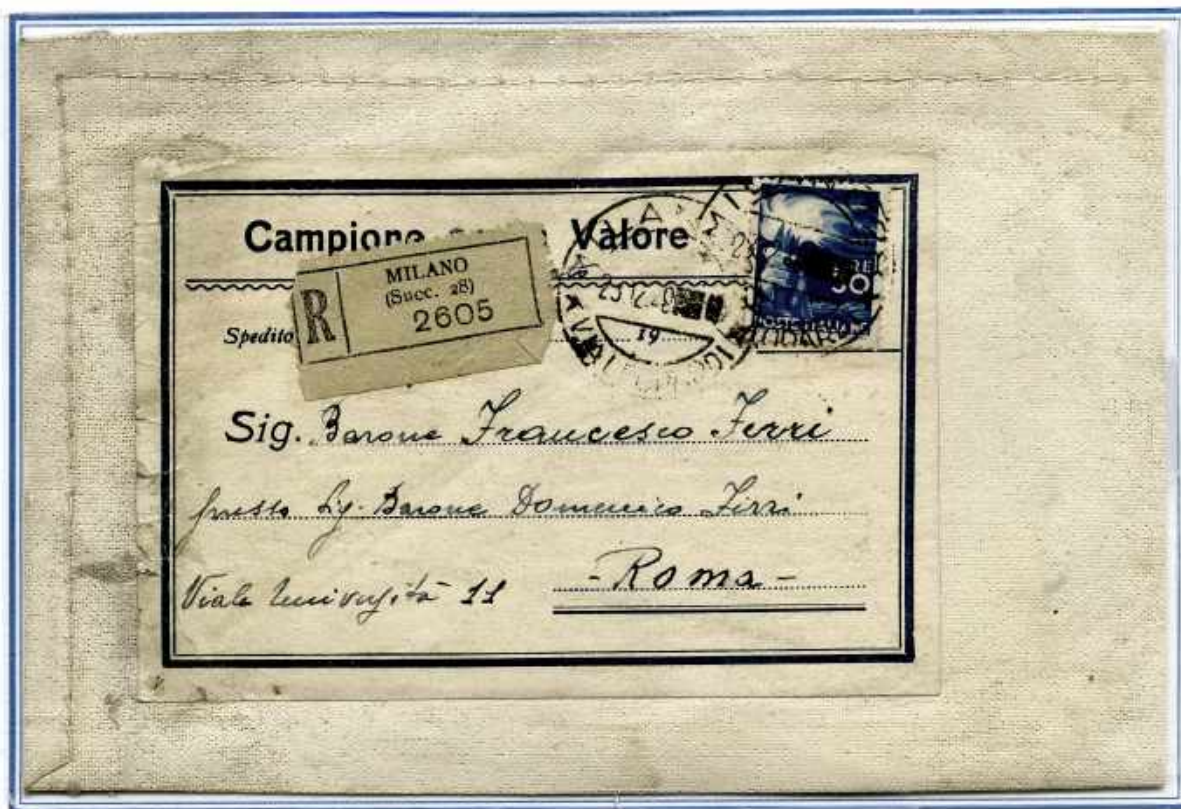 Campione Valore
R
MILANO
(Succ. 28)
2605
Spedito
19
50
Sig. Barone Francesco Ferri
presso Sig. Barone Domenico Ferri
Viale Università 11
- Roma -